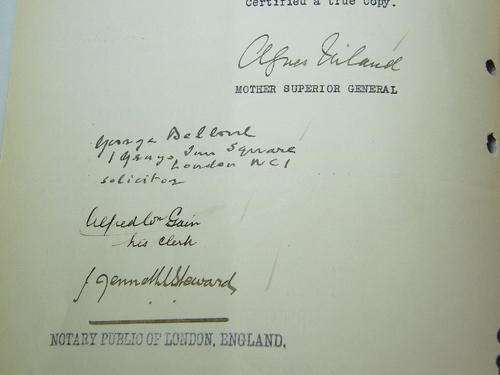 Certified a true copy.
Agnes Niland
MOTHER SUPERIOR GENERAL
George
1 Grays Inn Square
London WC1
solicitor
Alfred Wm Gain
his clerk
Steward
NOTARY PUBLIC OF LONDON, ENGLAND.